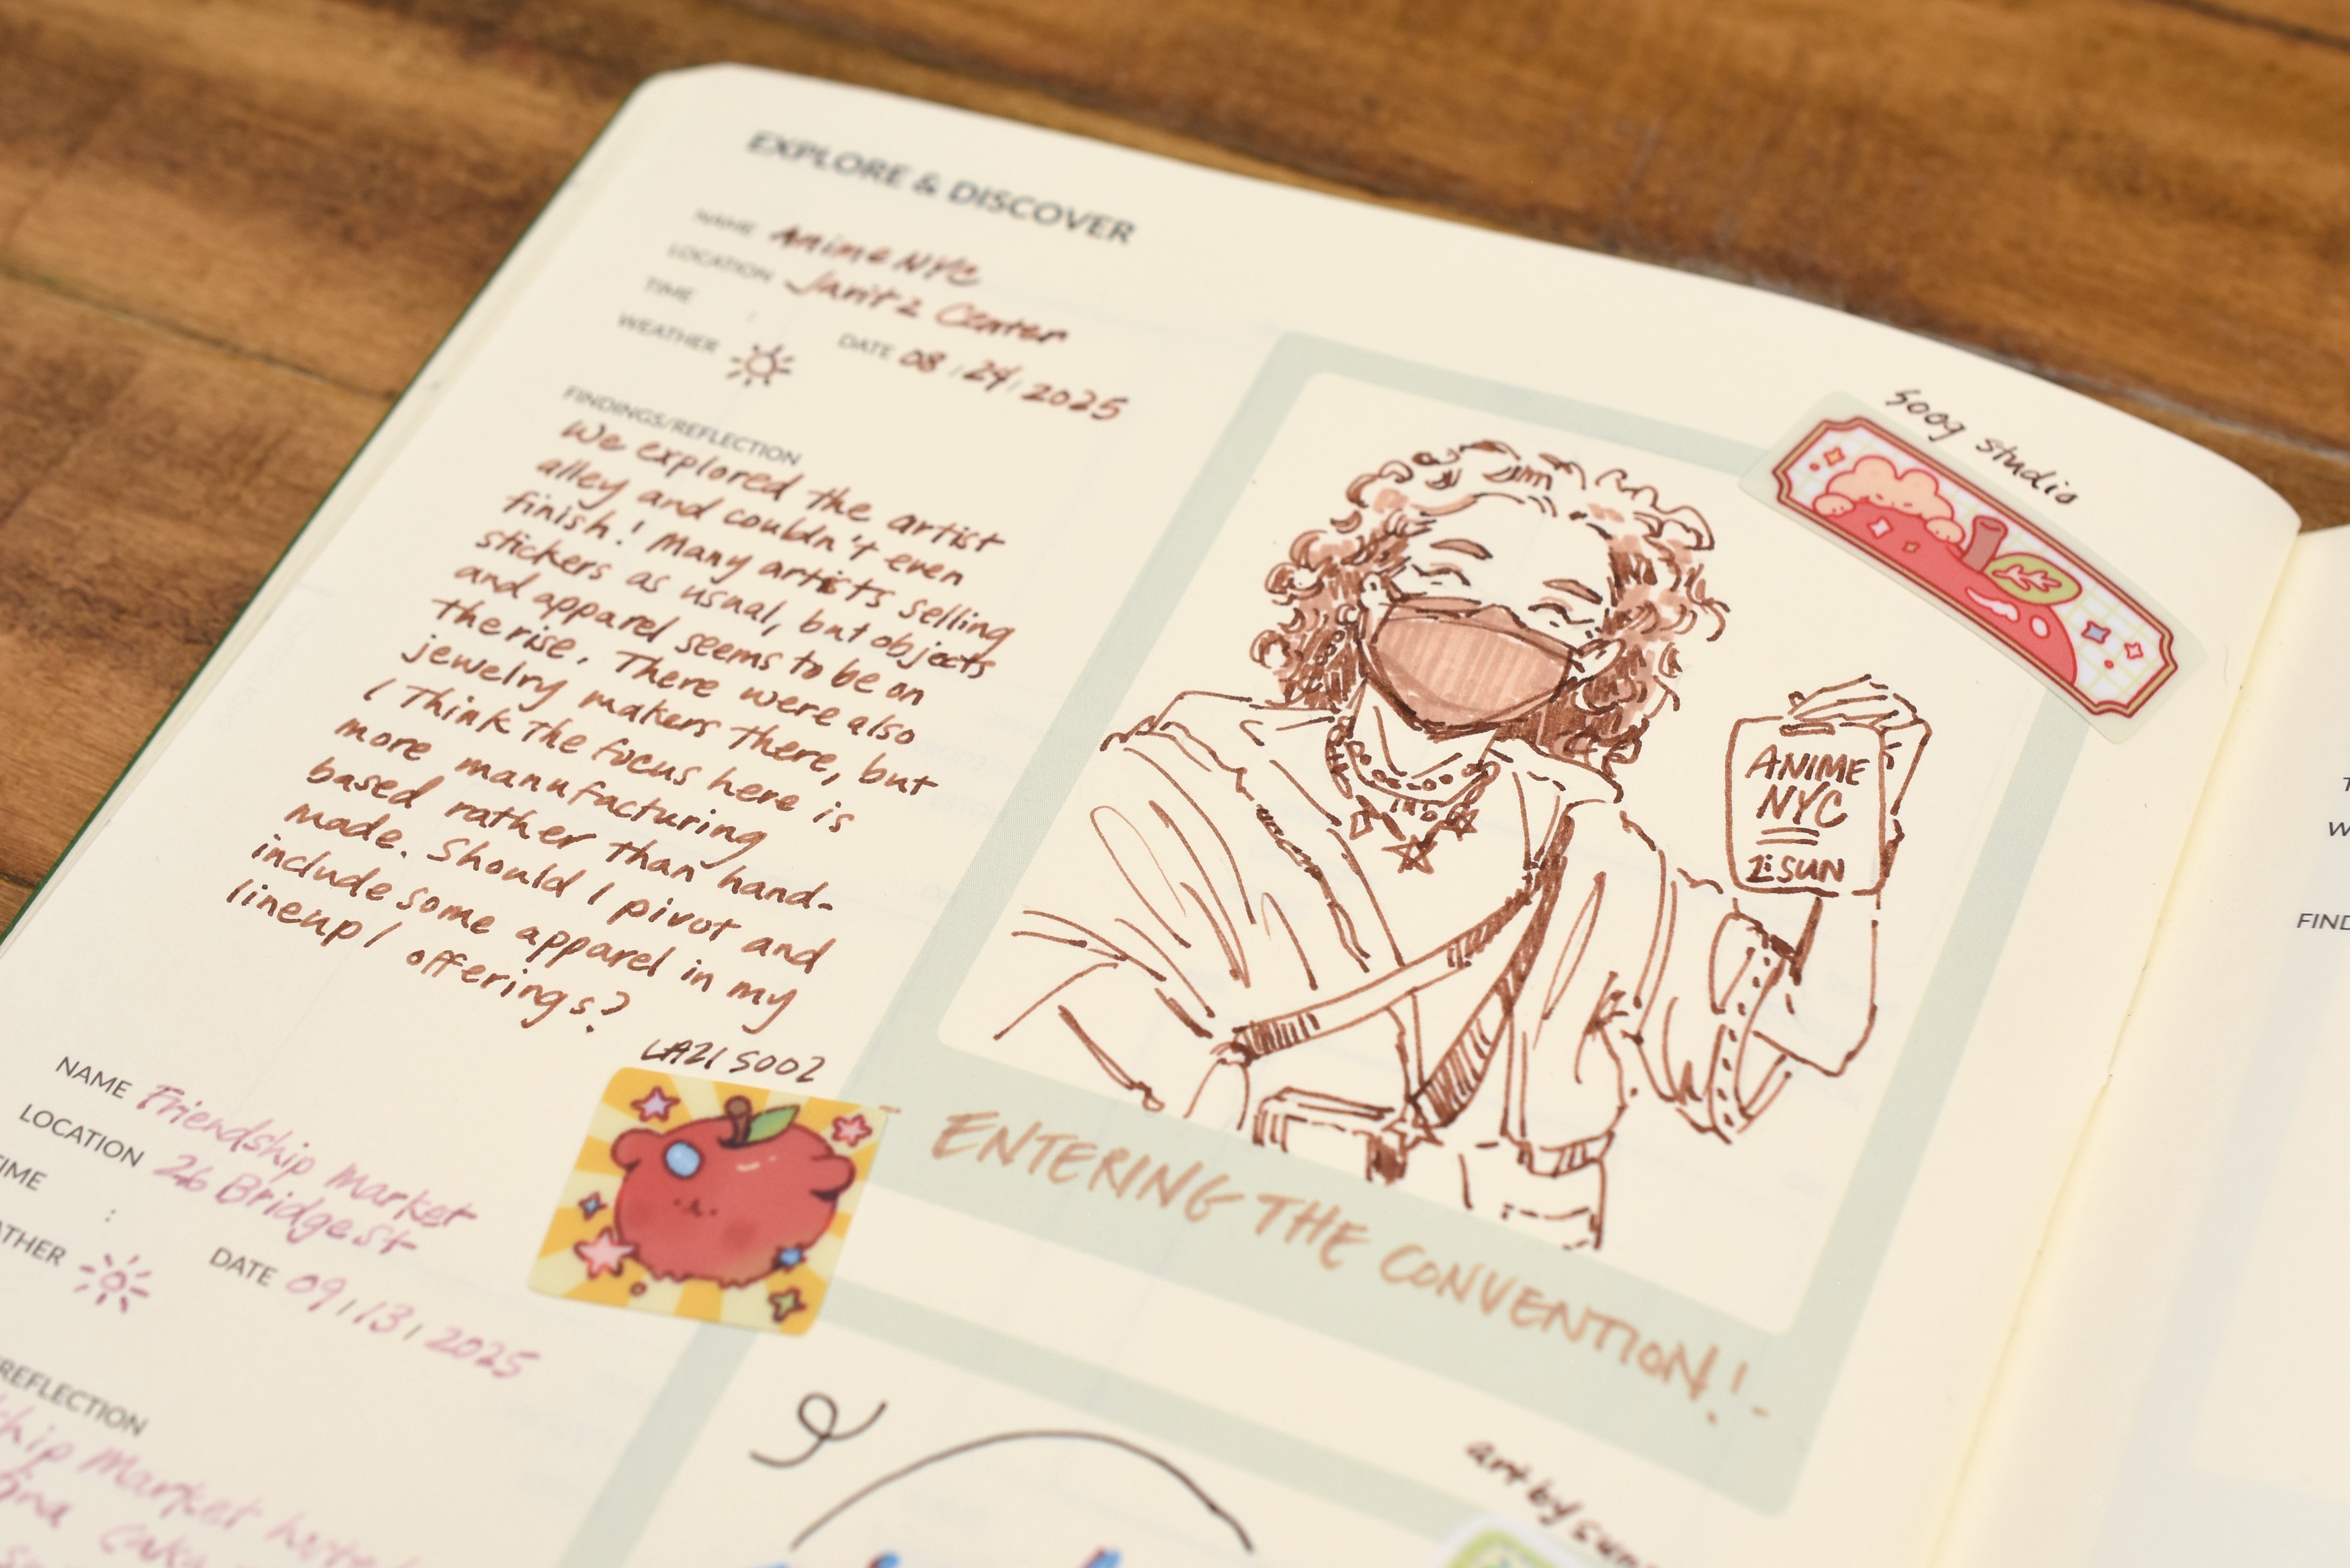 EXPLORE & DISCOVER
NAME Anime NYC
LOCATION Javitz Center
TIME :
WEATHER DATE 08 / 24 / 2025
FINDINGS/REFLECTION
We explored the artist
alley and couldn't even
finish! Many artists selling
stickers as usual, but objects
and apparel seems to be on
the rise. There were also
jewelry makers there, but
I think the focus here is
more manufacturing
based rather than hand-
made. Should I pivot and
include some apparel in my
lineup / offerings?
soog studio
ANIME
NYC
SUN
ENTERING THE CONVENTION!
NAME Friendship Market
LOCATION 26 Bridge st
TIME :
ATHER DATE 09 / 13 / 2025
REFLECTION
ship Market hosted
cake
art by
FIND